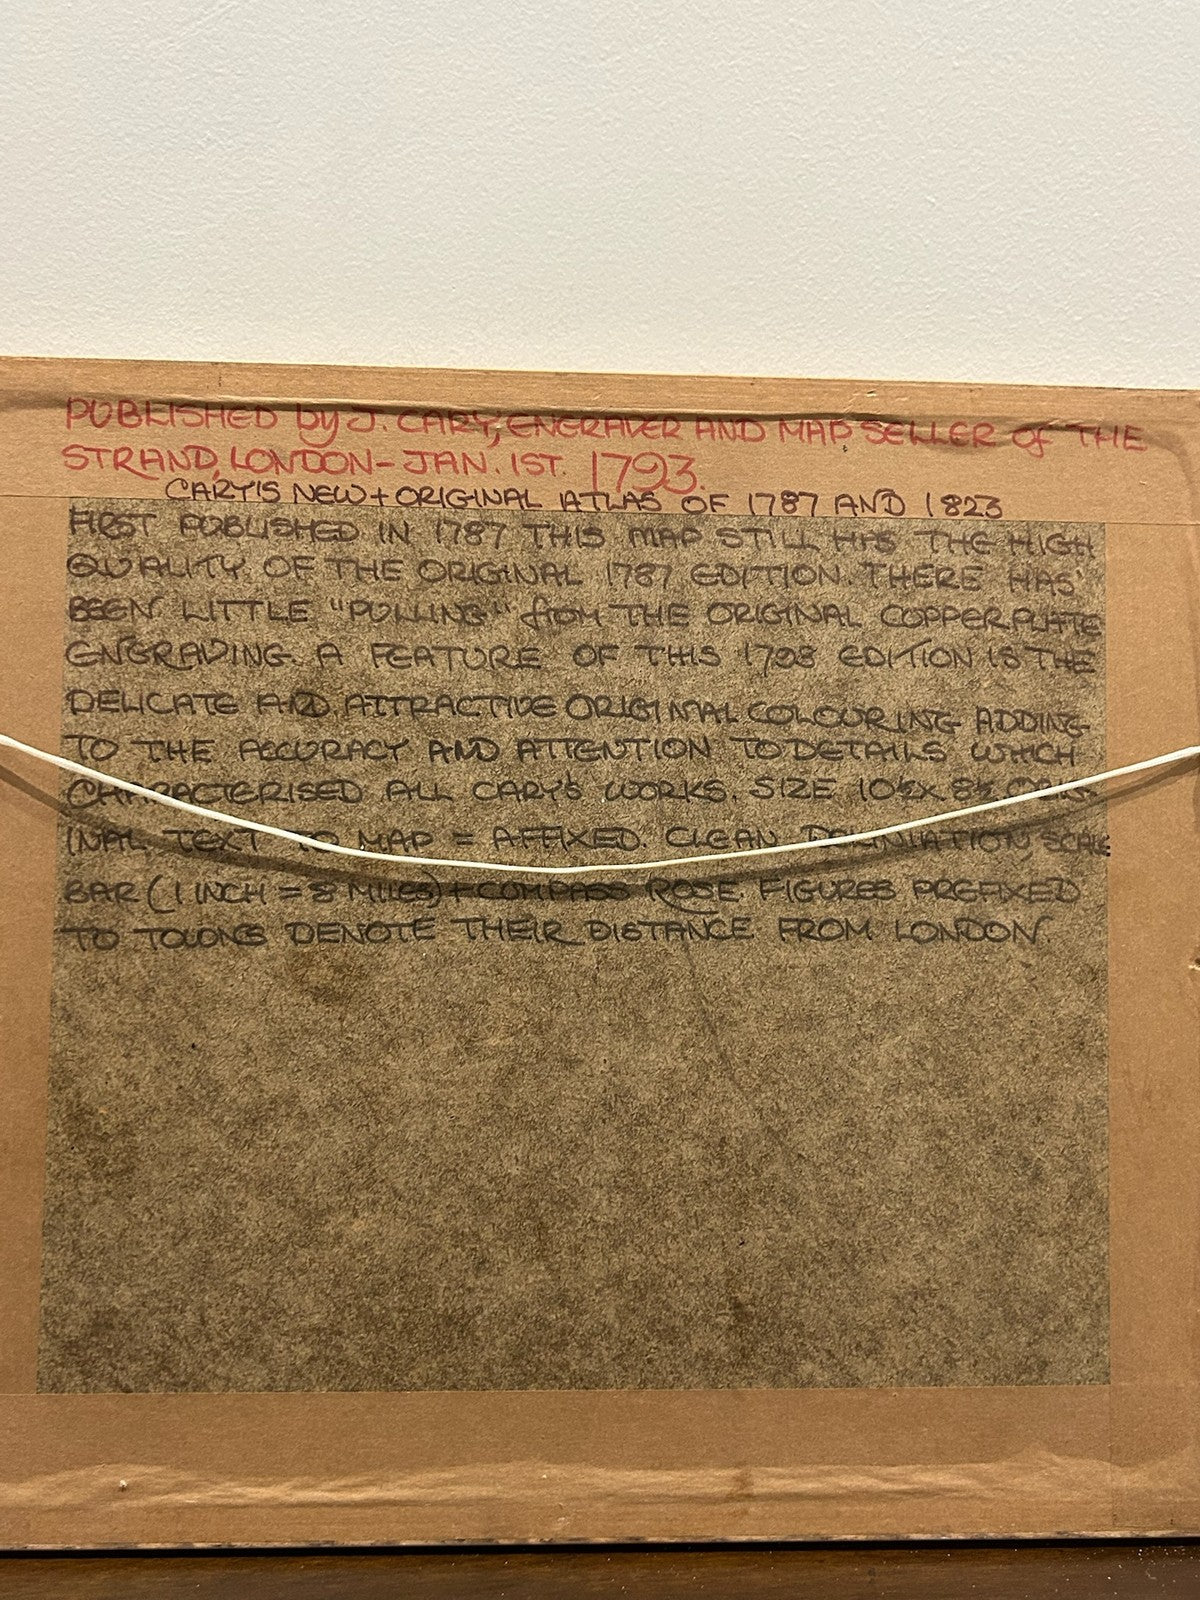 PUBLISHED by J. CARY, ENGRAVER AND MAP SELLER OF THE
STRAND, LONDON - JAN. 1ST. 1793.
CARY'S NEW + ORIGINAL ATLAS OF 1787 AND 1823
FIRST PUBLISHED IN 1787 THIS MAP STILL HAS THE HIGH
QUALITY OF THE ORIGINAL 1787 EDITION. THERE HAS
BEEN LITTLE "PULLING" from THE ORIGINAL COPPERPLATE
ENGRAVING. A FEATURE OF THIS EDITION IS THE
DELICATE AND ATTRACTIVE ORIGINAL COLOURING ADDING
TO THE ACCURACY AND ATTENTION TO DETAILS WHICH
CHARACTERISED ALL CARY'S WORKS. SIZE 10½ x 8½ ORIG-
INAL TEXT TO MAP = AFFIXED. CLEAN SCALE
BAR (1 INCH = 8 MILES) + COMPASS ROSE. FIGURES PREFIXED
TO TOWNS DENOTE THEIR DISTANCE FROM LONDON.